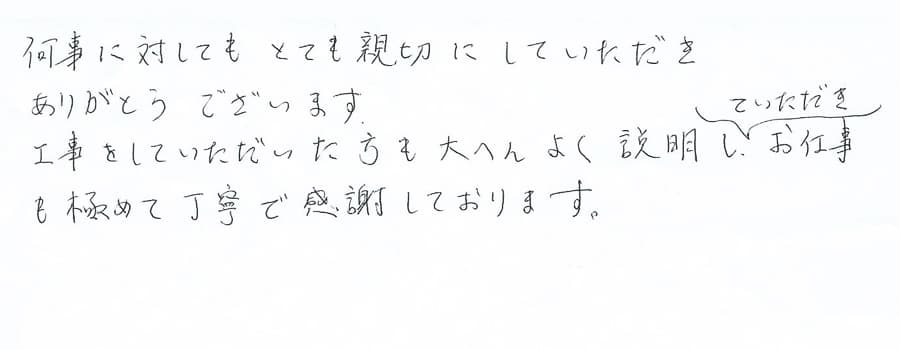 何事に対してもとても親切にしていただき
ありがとうございます.
ていただき
工事をしていただいた方も大へんよく説明し、お仕事
も極めて丁寧で感謝しております。